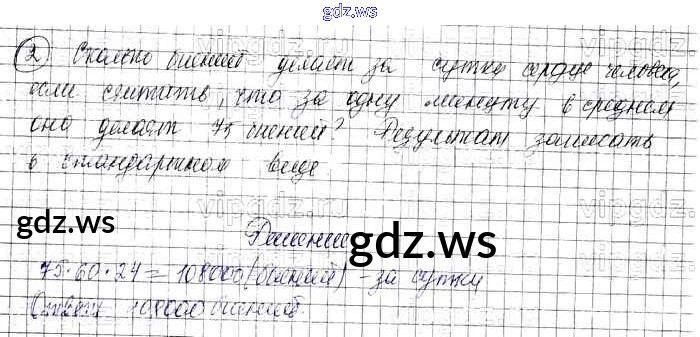 gdz.ws
② Сколько биений делает за сутки сердце человека,
если считать, что за одну минуту в среднем
оно делает 75 биений? Результат записать
в стандартном виде
gdz.ws
gdz.ws
Решение
75·60·24=108000(биений)-за сутки
Ответ: 108000 биений.